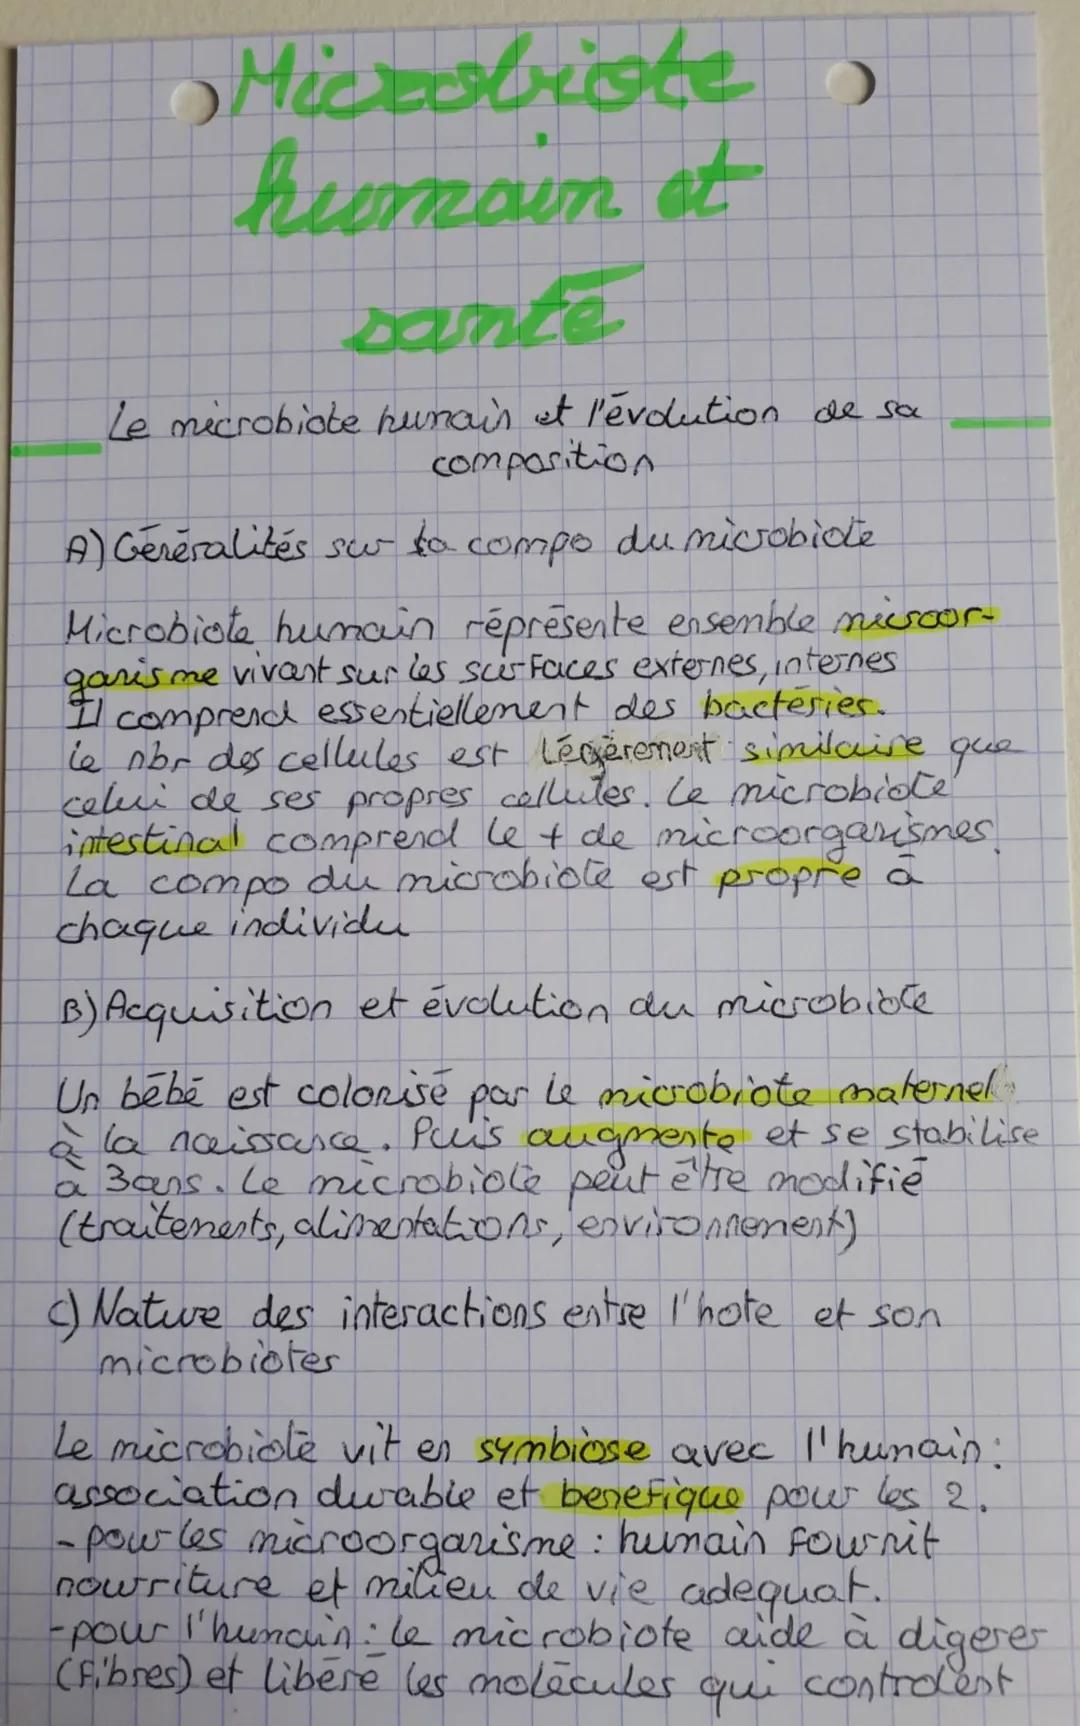 Microbiote
humain et
santé
Le microbiote humain et l'évolution de sa
composition
A) Généralités sur la compo du microbiote
Microbiote humain réprésente ensemble microor-
ganisme vivant sur les surfaces externes, internes
Il comprend essentiellement des bactéries.
Le nbr des cellules est légèrement similaire que
celui de ses propres cellules. Le microbiote
intestinal comprend le + de microorganismes.
La compo du microbiote est propre à
chaque individu
B) Acquisition et évolution du microbiote
Un bébé est colonisé par le microbiote maternel
à la naissance. Puis augmente et se stabilise
à 3ans. Le microbiote peut être modifié
(traitements, alimentations, environnement)
C) Nature des interactions entre l'hote et son
microbiotes
Le microbiote vit en symbiose avec l'humain :
association durable et benefique pour les 2.
- pour les microorganisme : humain fournit
nourriture et milieu de vie adequat.
- pour l'humain : le microbiote aide à digerer
(fibres) et libéré les molécules qui controlent